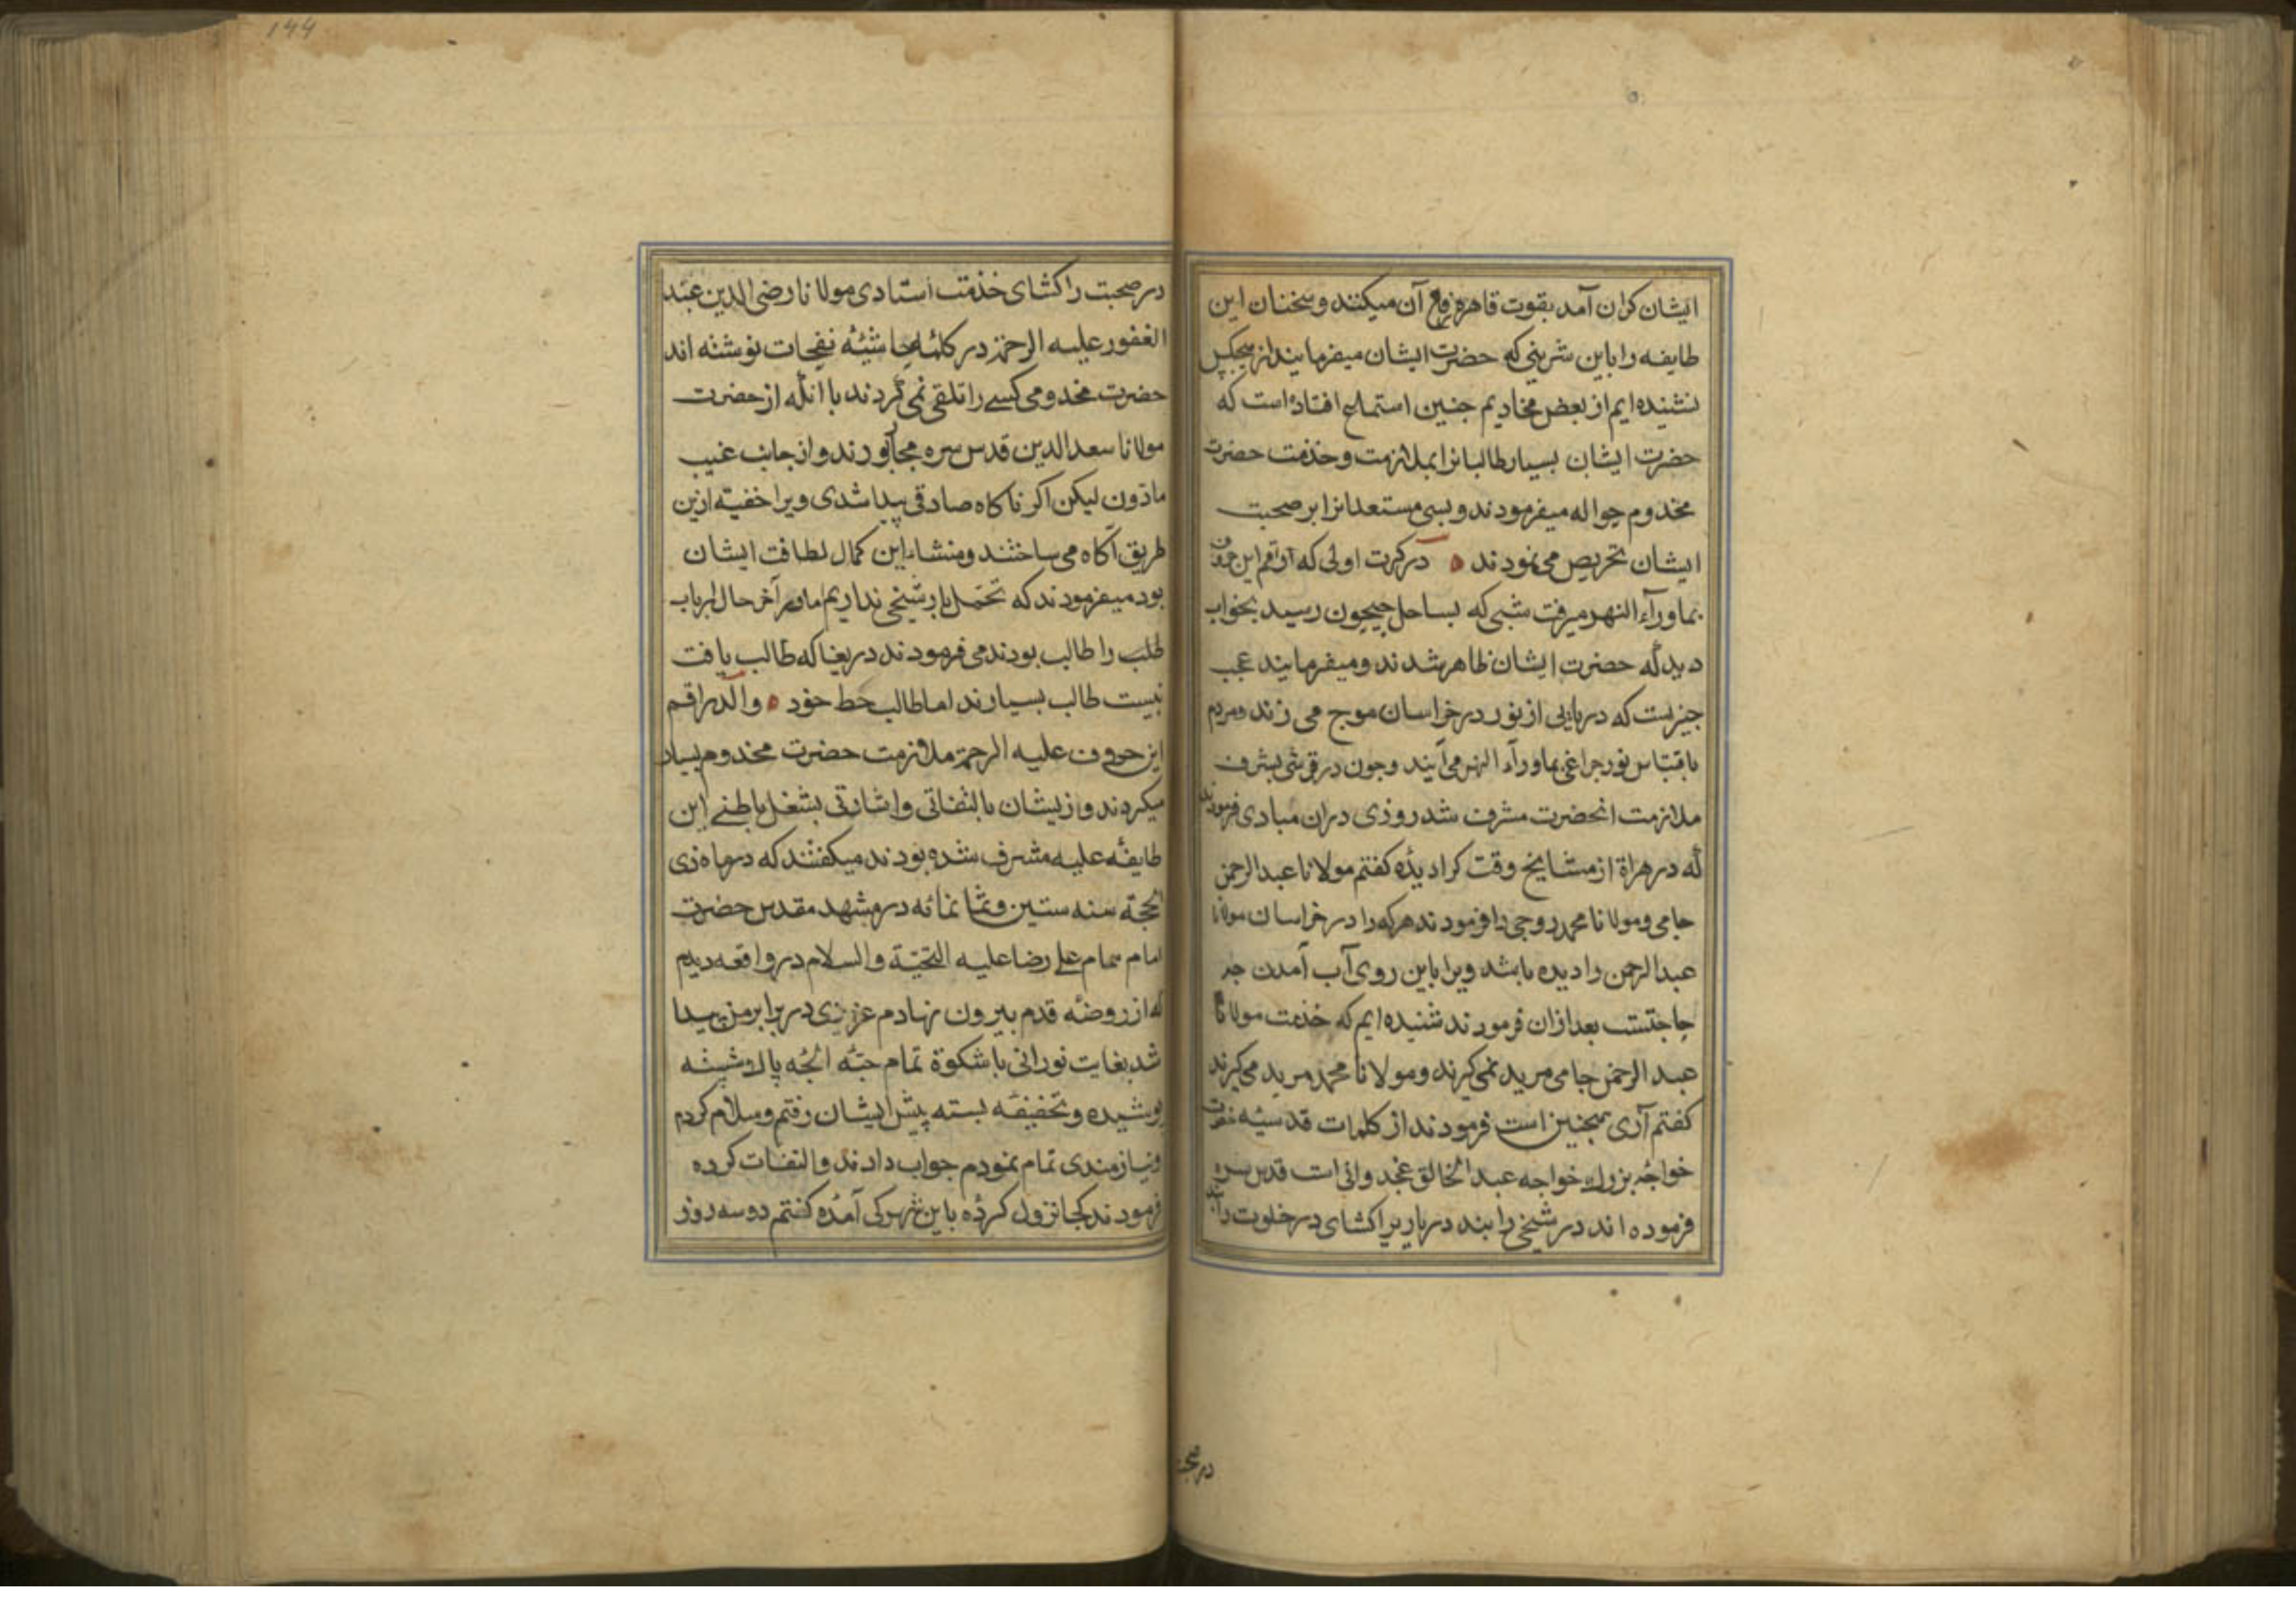 ایشان کران آمد بقوت قاهره رفع آن میکنند و سخنان این
طایفه را باین شرینی که حضرت ایشان میفرمایند از هیچکس
نشنیده ایم از بعض مخادیم جنین استماع افتاده است که
حضرت ایشان بسیار طالبانرا بملازمت وخذمت حضرت
مخدوم حواله میفرمودند و بسی مستعدانرا بر صحبت
ایشان تحریص می نمودند ه در کرت اولی که راقم این حروف
بماورآء النهر میرفت شبی که بساحل جیحون رسید بخواب
دید که حضرت ایشان ظاهر شدند و میفرمایند عجب
جیزیست که دریایی از نور در خراسان موج می زند ومردم
باقتباس نور جراغی بماورآء النهر می آیند وجون در قرشی بشرف
ملازمت انحضرت مشرف شد روزی دران مبادی فرمودند
که در هراة از مشایخ وقت کرا دیدۀ کفتم مولانا عبد الرحمن
جامی ومولانا محمد روجی را فرمودند هرکه را در خراسان مولانا
عبد الرحمن را دیده باشد ویرا باین روی آب آمدن جه
حاجتست بعد ازان فرمودند شنیده ایم که خذمت مولانا
عبد الرحمن جامی مرید نمی کیرند ومولانا محمد مرید می کیرند
کفتم آری همجنین است فرمودند از کلمات قدسیۀ حضرت
خواجۀ بزرك خواجه عبد الخالق غجدوانی است قدس سره
فرموده اند در شیخی را بند در یاریرا کشای در خلوت را بند
در صحبت
۱۴۴
در صحبت را کشای خذمت استادی مولانا رضی الدین عبد
الغفور علیه الرحمة در تکملۀ حاشیۀ نفحات نوشته اند
حضرت مخدومی کسی را تلقی نمی کردند با انکه از حضرت
مولانا سعد الدین قدس سره مجاز بودند و از جانب غیب
ماذون لیکن اکر ناکاه صادقی پیدا شدی ویرا خفیته ازین
طریق آکاه می ساختند ومنشاء این کمال لطافت ایشان
بود میفرمودند که تحمل بار شیخی نداریم اما در آخر حال ارباب
طلب را طالب بودند می فرمودند دریغا که طالب یافت
نیست طالب بسیارند اما طالب حظ خود ه والد راقم
این حروف علیه الرحمة ملازمت حضرت مخدوم بسیار
میکردند و از یشان بالتفاتی واشارتی بشغل باطنی این
طایفۀ علیه مشرف شده بودند میکفتند که در ماه ذی
الحجة سنه ستین وثمانمائه در مشهد مقدس حضرت
امام همام علی رضا علیه التحیة والسلام در واقعه دیدم
که از روضه قدم بیرون نهادم عزیزی در برابر من پیدا
شد بغایت نورانی با شکوة تمام جبۀ الجه پالا شیشه
پوشیده وتخفیفه بسته پیش ایشان رفتم وسلام کردم
ونیازمندی تمام نمودم جواب دادند والتفات کرده
فرمودند کجا نزول کردۀ باین شهر کی آمدۀ کفتم دو سه روز